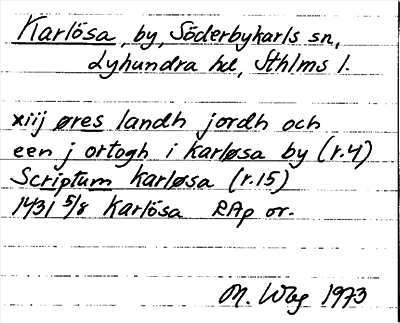 Karlösa, by, Söderbykarls sn,
Lyhundra hd, Sthlms l.
xiij øres landh jordh och
een j ortogh i karløsa by (r.4)
Scriptum karløsa (r.15)
1431 5/8 Karlösa RAp or.
M. Wbg 1973